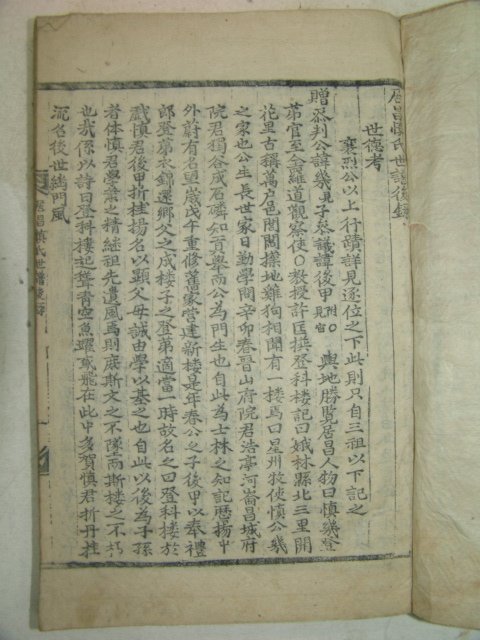 居昌愼氏世譜後錄
世德考
襄烈公以上行蹟詳見逐位之下此則只自三祖以下記之
贈叅判公諱幾見子叅議諱後甲附見 輿地勝覽居昌人物曰愼幾登
第官至全羅道觀察使〇敎授許匡撰登科樓記曰娥林縣北三里開
花里古稱萬戶邑閭閻撲地雞狗相聞有一樓焉曰星州牧使愼公幾
之家也公生長世家日勤學問辛卯春晉山府院君浩亭河崙昌城府
院君獨谷成石磷知貢擧而公爲門生也自此爲士林之知記歷揚中
外蔚有名望歲戊午重修舊家營建新樓是年春公之子後甲以奉禮
郞登第衣錦還鄕父之成樓子之登第適當一時故名之曰登科樓於
戱愼君後甲折桂揚名以顯父母誠由學以基之也自此以後爲子孫
者体愼君學業之精繼祖先遺風焉則庶斯文之不墜而斯樓之不朽
也我係以詩曰登科樓記聳靑空魚躍鳶飛在此中多賀愼君折丹桂
流名後世継門風
居昌愼氏世譜